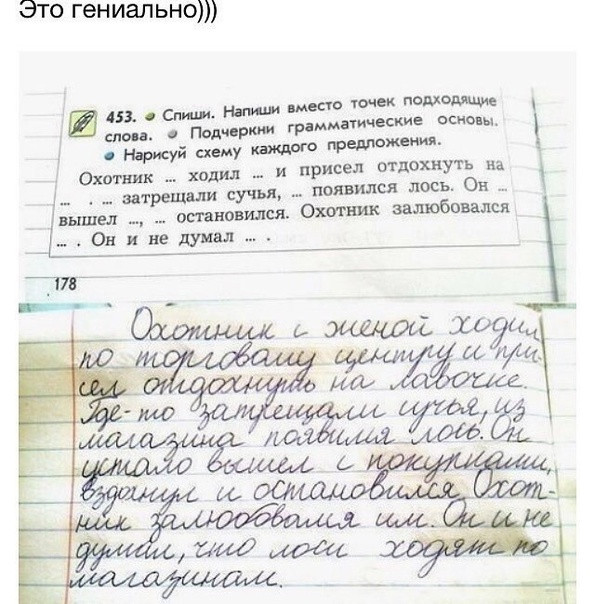 Это гениально)))
453. Спиши. Напиши вместо точек подходящие
слова. Подчеркни грамматические основы.
Нарисуй схему каждого предложения.
Охотник ... ходил ... и присел отдохнуть на
... . ... затрещали сучья, ... появился лось. Он ...
вышел ..., ... остановился. Охотник залюбовался
... . Он и не думал ... .
178
Охотник с женой ходил
по торговому центру и при-
сел отдохнуть на лавочке.
Где-то затрещали сучья, из
магазина появился лось. Он
устало вышел с покупками,
вздохнул и остановился. Охот-
ник залюбовался им. Он и не
думал, что лоси ходят по
магазинам.